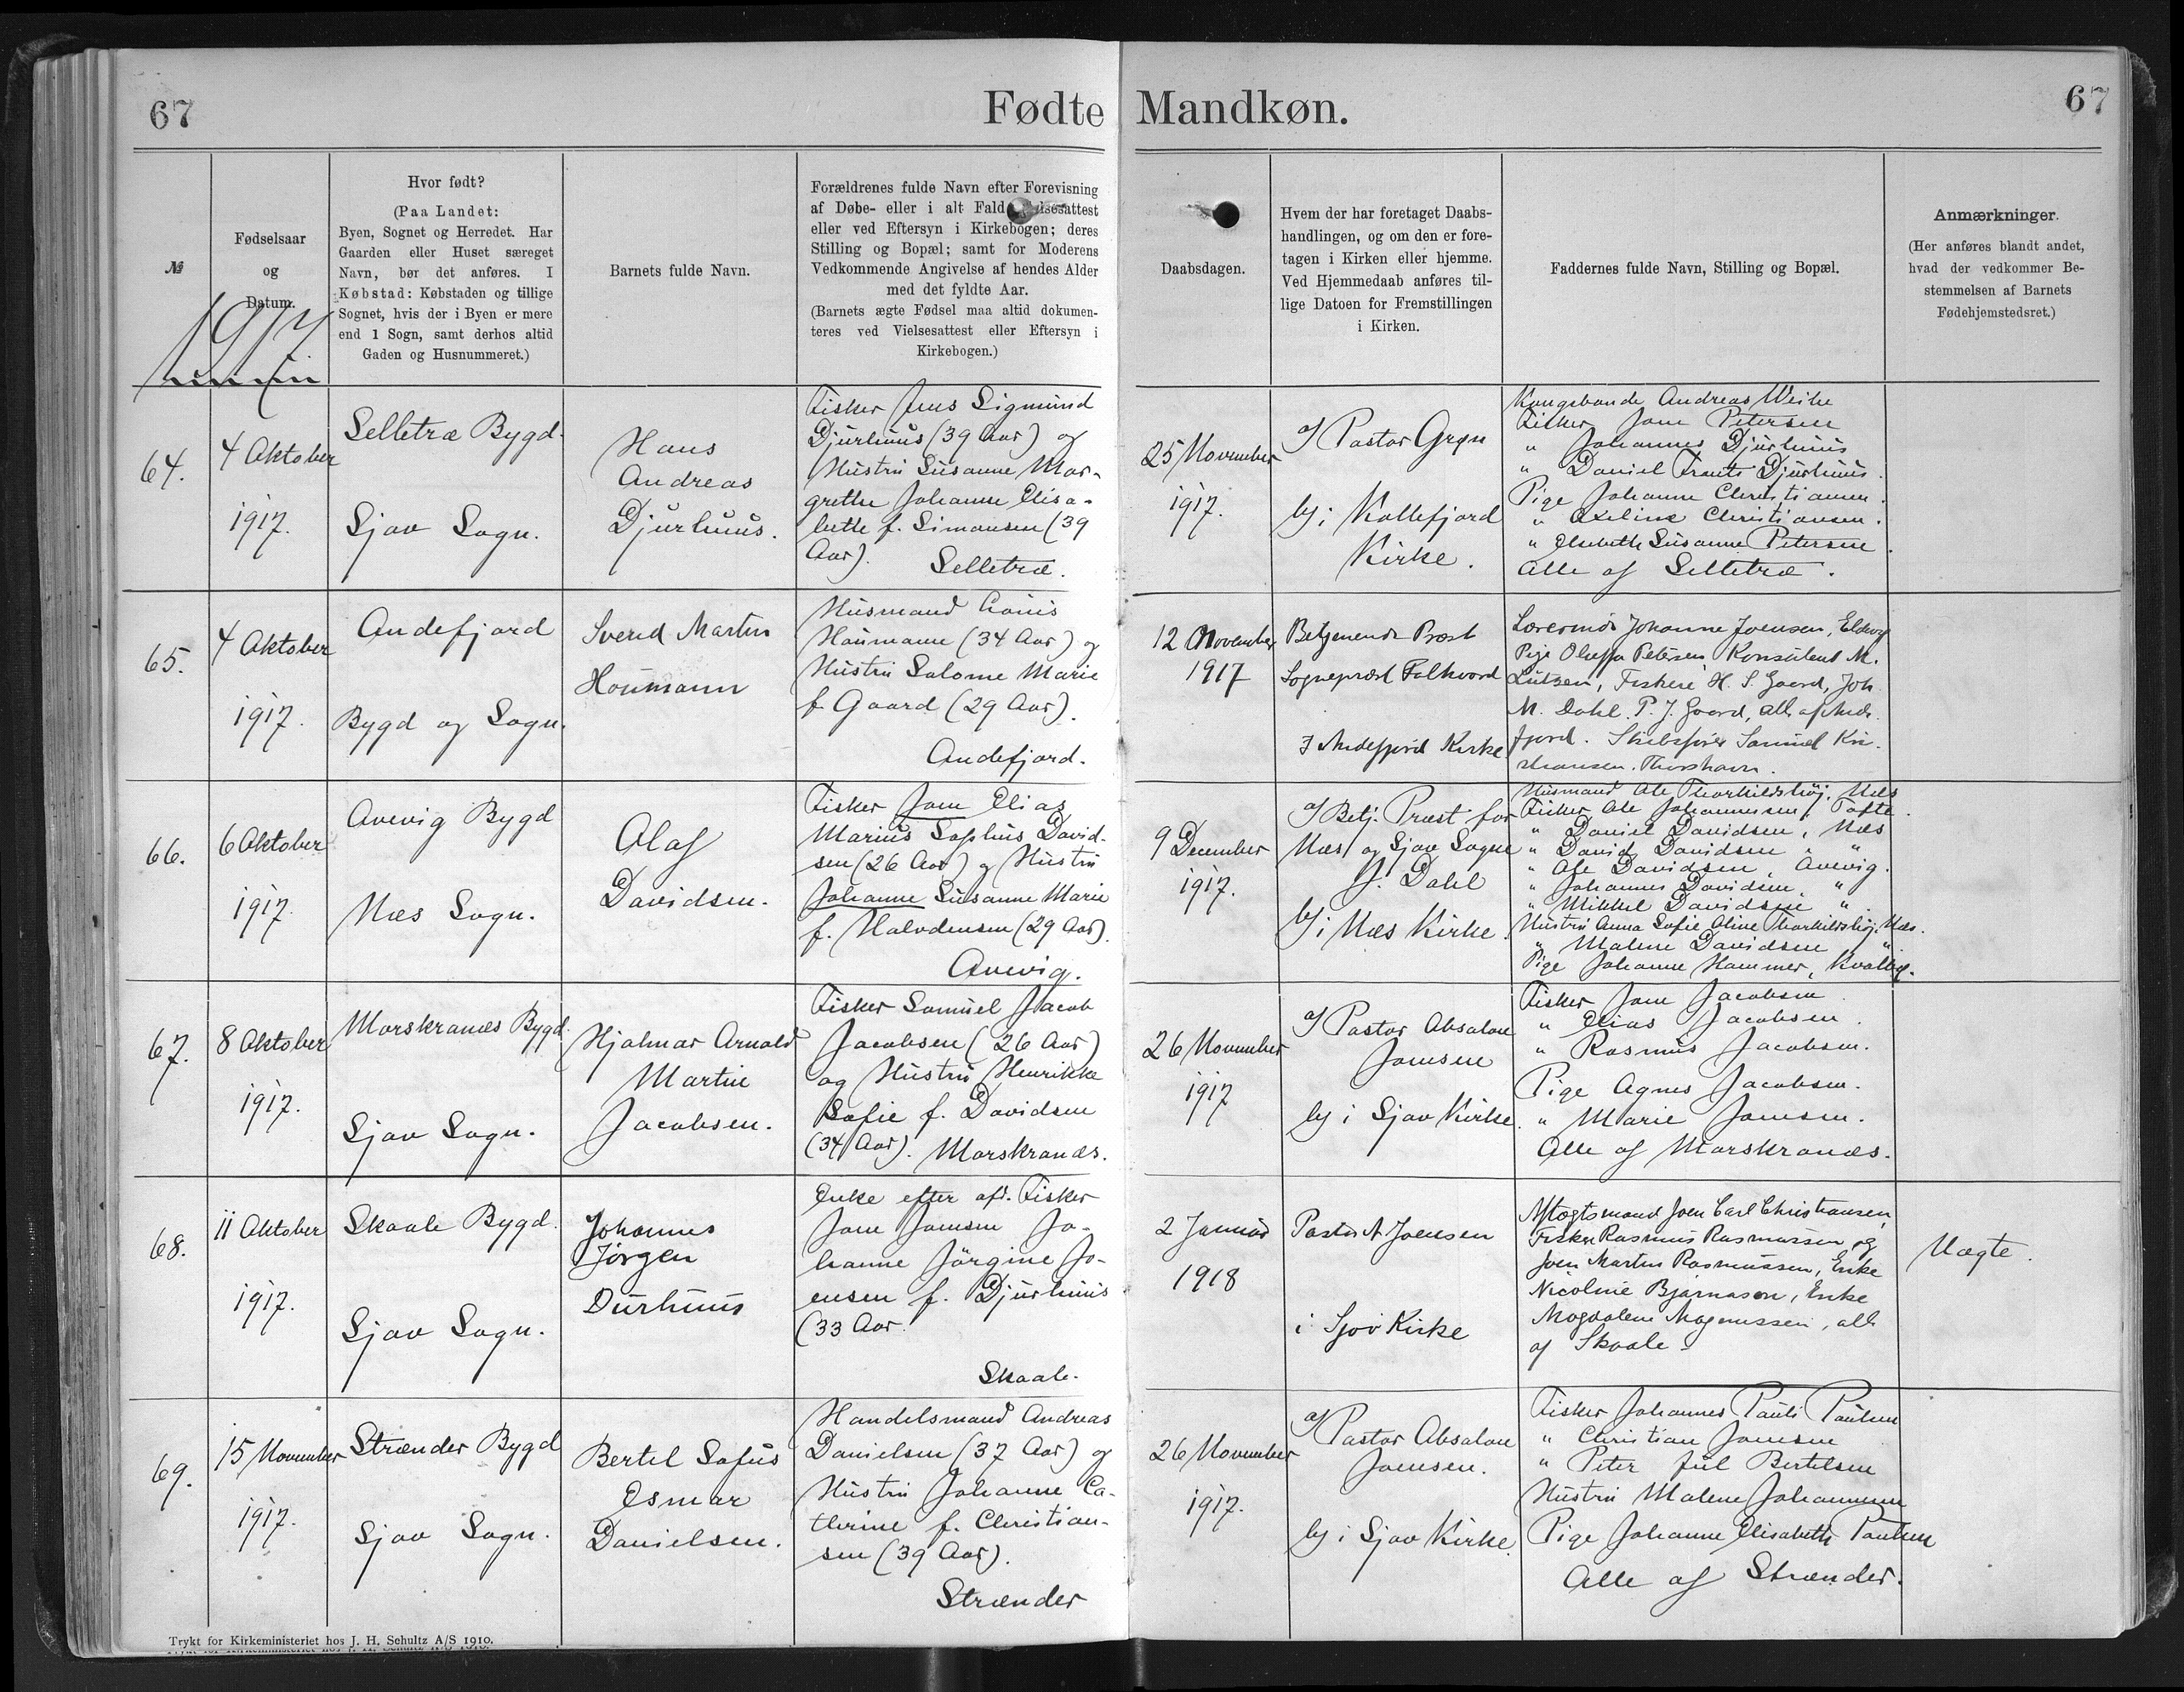 67
Fødte Mandkøn.
67
№
Fødselsaar
og
Datum.
1917
Hvor født?
(Paa Landet:
Byen, Sognet og Herredet. Har
Gaarden eller Huset særeget
Navn, bør det anføres. I
Købstad: Købstaden og tillige
Sognet, hvis der i Byen er mere
end 1 Sogn, samt derhos altid
Gaden og Husnummeret.)
Barnets fulde Navn.
Forældrenes fulde Navn efter Forevisning
af Døbe- eller i alt Fald
eller ved Eftersyn i Kirkebogen; deres
Stilling og Bopæl; samt for Moderens
Vedkommende Angivelse af hendes Alder
med det fyldte Aar.
(Barnets ægte Fødsel maa altid dokumen-
teres ved Vielsesattest eller Eftersyn i
Kirkebogen.)
Daabsdagen.
Hvem der har foretaget Daabs-
handlingen, og om den er fore-
tagen i Kirken eller hjemme.
Ved Hjemmedaab anføres til-
lige Datoen for Fremstillingen
i Kirken.
Faddernes fulde Navn, Stilling og Bopæl.
Anmærkninger.
(Her anføres blandt andet,
hvad der vedkommer Be-
stemmelsen af Barnets
Fødehjemstedsret.)
64.
4 Oktober
1917.
Selletræ Bygd.
Sjov Sogn.
Hans
Andreas
Djurhuus.
Fisker Jens Sigmund
Djurhuus (39 Aar) og
Hustru Susanne Mar-
grethe Johanne Elisa-
beth f. Simonsen (39
Aar).
Selletræ.
25 November
1917.
af Pastor Gryn
i Kollefjord
Kirke.
Kongsbonde Andreas Weihe
Fisker Joen Petersen
" Johannes Djurhuus
" Daniel Frants Djurhuus.
Pige Johanne Christiansen.
" Oxeline Christiansen.
" Elsebeth Susanne Petersen.
Alle af Selletræ.
65.
4 Oktober
1917.
Andefjord
Bygd og Sogn.
Svend Martin
Houmann
Husmand Louis
Houmann (34 Aar) og
Hustru Salome Marie
f. Gaard (29 Aar).
Andefjord.
12 November
1917
Betjenende Præst
Sognepræst Falkvord
I Andefjord Kirke
Lærerinde Johanne Joensen,
Pige Oluffa Petersen Konsulent M.
Lützen, Fiskere H. S. Gaard, Joh.
M. Dahl. P. J. Gaard, alle af Ande-
fjord. Skibsfører Samuel Kri-
stiansen. Thorshavn.
66.
6 Oktober
1917.
Avevig Bygd
Næs Sogn.
Olaf
Davidsen.
Fisker Joen Elias
Marius Sophus David-
sen (26 Aar) og Hustru
Johanne Susanne Marie
f. Halvdensen (29 Aar).
Avevig.
9 December
1917.
af Betj. Præst for
Næs og Sjov Sogne
J. Dahl
i Næs Kirke.
Husmand Ole Thorkildshøj, Næs
Fisker Ole Johannesen, Tofte.
" Daniel Davidsen, Næs
" David Davidsen "
" Ole Davidsen, Avevig.
" Johannes Davidsen, "
" Mikkel Davidsen "
Hustru Anna Sofie Oline Thorkildshøj, Næs.
" Malene Davidsen "
Pige Johanne Hammer, Kvalbø.
67.
8 Oktober
1917.
Morskranæs Bygd.
Sjov Sogn.
Hjalmar Arnold
Martin
Jacobsen.
Fisker Samuel Jacob
Jacobsen (26 Aar)
og Hustru Henrikke
Sofie f. Davidsen
(34 Aar). Morskranæs.
26 November
1917
af Pastor Absalon
Joensen
i Sjov Kirke.
Fisker Joen Jacobsen
" Elias Jacobsen.
" Rasmus Jacobsen.
Pige Agnes Jacobsen.
" Marie Joensen.
Alle af Morskranæs.
68.
11 Oktober
1917.
Skaale Bygd.
Sjov Sogn.
Johannes
Jørgen
Durhuus
Enke efter afd. Fisker
Joen Joensen Jo-
hanne Jörgine Jo-
ensen f. Djurhuus
(33 Aar.
Skaale.
2 Januar
1918
Pastor A Joensen
i Sjov Kirke
Aftægtsmand Joen Carl Christiansen,
Fisker Rasmus Rasmussen og
Joen Martin Rasmussen, Enke
Nicoline Bjarnason, Enke
Magdalene Magnussen, alle
af Skaale.
Uægte.
69.
15 November
1917.
Strænder Bygd
Sjov Sogn.
Bertel Sofus
Esmar
Danielsen.
Handelsmand Andreas
Danielsen (37 Aar) og
Hustru Johanne Ca-
thrine f. Christian-
sen (39 Aar).
Strænder
26 November
1917.
af Pastor Absalon
Joensen.
i Sjov Kirke.
Fisker Johannes Pauli Paulsen
" Christian Joensen
" Peter Juul Bertelsen
Hustru Malene Johannesen
Pige Johanne Elisabeth Paulsen
Alle af Strænder.
Trykt for Kirkeministeriet hos J. H. Schultz A/S 1910.